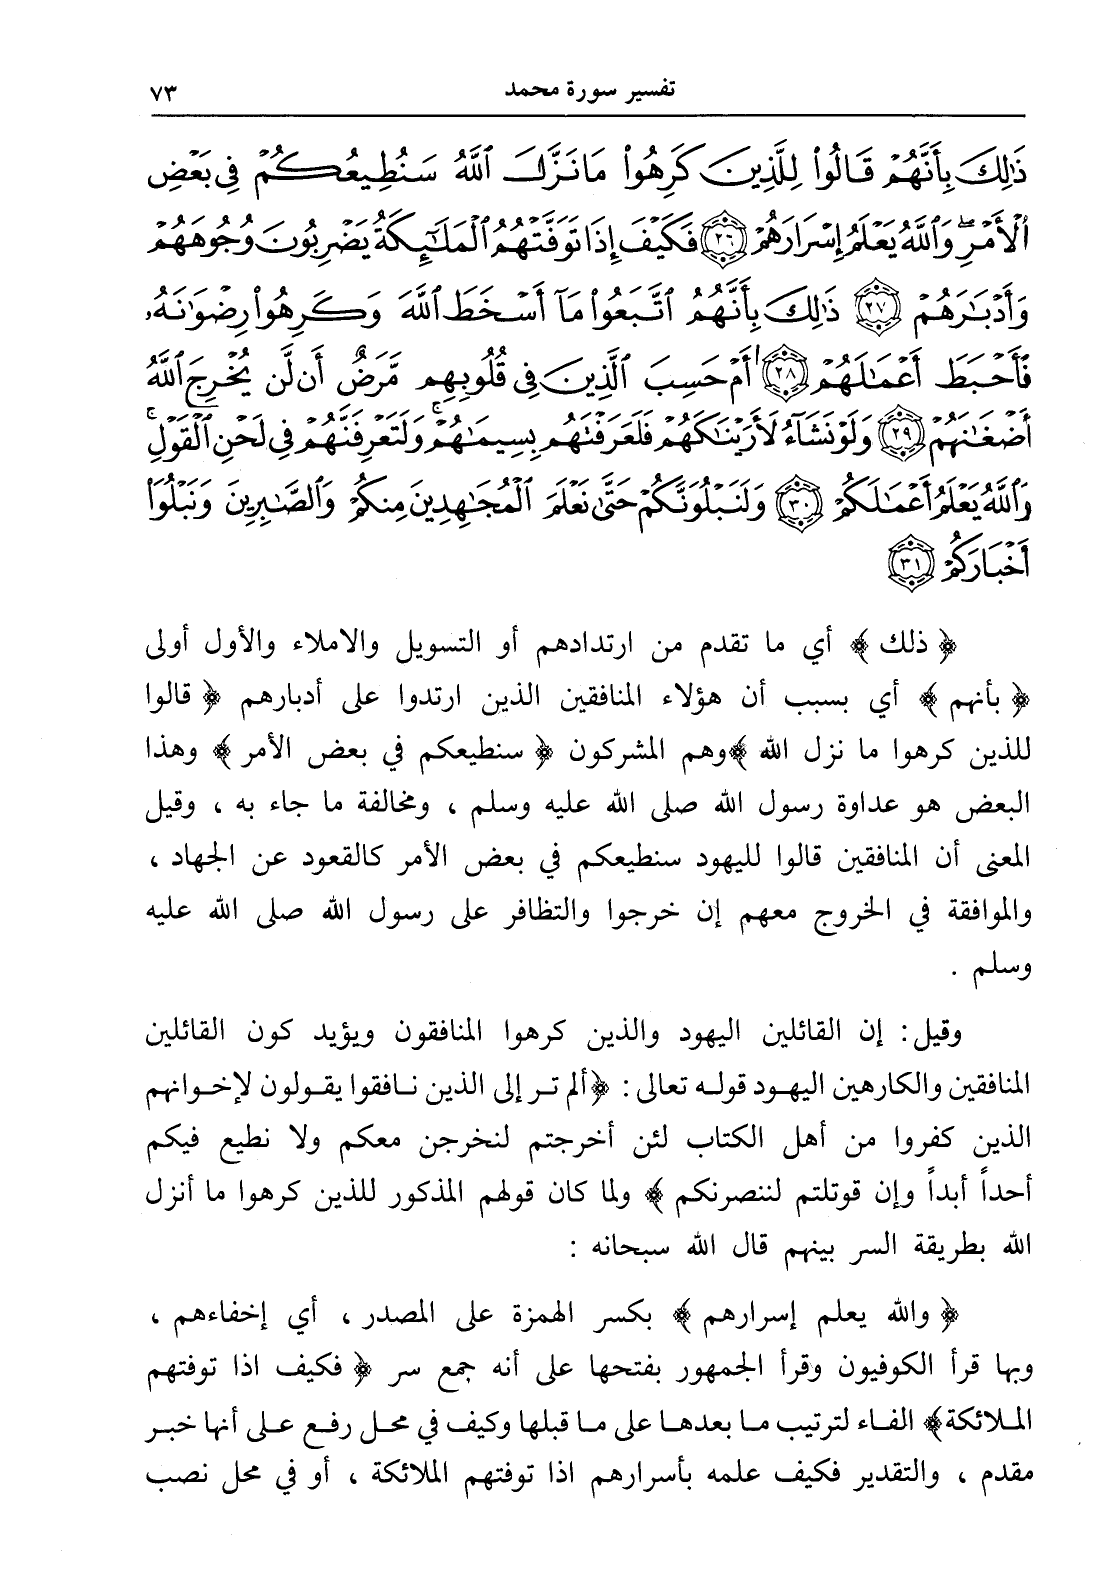 تفسير سورة محمد ٧٣
ذَٰلِكَ بِأَنَّهُمْ قَالُوا۟ لِلَّذِينَ كَرِهُوا۟ مَا نَزَّلَ ٱللَّهُ سَنُطِيعُكُمْ فِى بَعْضِ
ٱلْأَمْرِ ۖ وَٱللَّهُ يَعْلَمُ إِسْرَارَهُمْ ٢٦ فَكَيْفَ إِذَا تَوَفَّتْهُمُ ٱلْمَلَٰٓئِكَةُ يَضْرِبُونَ وُجُوهَهُمْ
وَأَدْبَٰرَهُمْ ٢٧ ذَٰلِكَ بِأَنَّهُمُ ٱتَّبَعُوا۟ مَآ أَسْخَطَ ٱللَّهَ وَكَرِهُوا۟ رِضْوَٰنَهُۥ
فَأَحْبَطَ أَعْمَٰلَهُمْ ٢٨ أَمْ حَسِبَ ٱلَّذِينَ فِى قُلُوبِهِم مَّرَضٌ أَن لَّن يُخْرِجَ ٱللَّهُ
أَضْغَٰنَهُمْ ٢٩ وَلَوْ نَشَآءُ لَأَرَيْنَٰكَهُمْ فَلَعَرَفْتَهُم بِسِيمَٰهُمْ ۚ وَلَتَعْرِفَنَّهُمْ فِى لَحْنِ ٱلْقَوْلِ ۚ
وَٱللَّهُ يَعْلَمُ أَعْمَٰلَكُمْ ٣٠ وَلَنَبْلُوَنَّكُمْ حَتَّىٰ نَعْلَمَ ٱلْمُجَٰهِدِينَ مِنكُمْ وَٱلصَّٰبِرِينَ وَنَبْلُوَا۟
أَخْبَارَكُمْ ٣١
﴿ ذلك ﴾ أي ما تقدم من ارتدادهم أو التسويل والاملاء والأول أولى
﴿ بأنهم ﴾ أي بسبب أن هؤلاء المنافقين الذين ارتدوا على أدبارهم ﴿ قالوا
للذين كرهوا ما نزل الله ﴾ وهم المشركون ﴿ سنطيعكم في بعض الأمر ﴾ وهذا
البعض هو عداوة رسول الله صلى الله عليه وسلم ، ومخالفة ما جاء به ، وقيل
المعنى أن المنافقين قالوا لليهود سنطيعكم في بعض الأمر كالقعود عن الجهاد ،
والموافقة في الخروج معهم إن خرجوا والتظافر على رسول الله صلى الله عليه
وسلم .
وقيل : إن القائلين اليهود والذين كرهوا المنافقون ويؤيد كون القائلين
المنافقين والكارهين اليهود قوله تعالى : ﴿ألم تر إلى الذين نافقوا يقولون لإخوانهم
الذين كفروا من أهل الكتاب لئن أخرجتم لنخرجن معكم ولا نطيع فيكم
أحداً أبداً وإن قوتلتم لننصرنكم ﴾ ولما كان قولهم المذكور للذين كرهوا ما أنزل
الله بطريقة السر بينهم قال الله سبحانه :
﴿ والله يعلم إسرارهم ﴾ بكسر الهمزة على المصدر ، أي إخفاءهم ،
وبها قرأ الكوفيون وقرأ الجمهور بفتحها على أنه جمع سر ﴿ فكيف اذا توفتهم
الملائكة﴾ الفاء لترتيب ما بعدها على ما قبلها وكيف في محل رفع على أنها خبر
مقدم ، والتقدير فكيف علمه بأسرارهم اذا توفتهم الملائكة ، أو في محل نصب